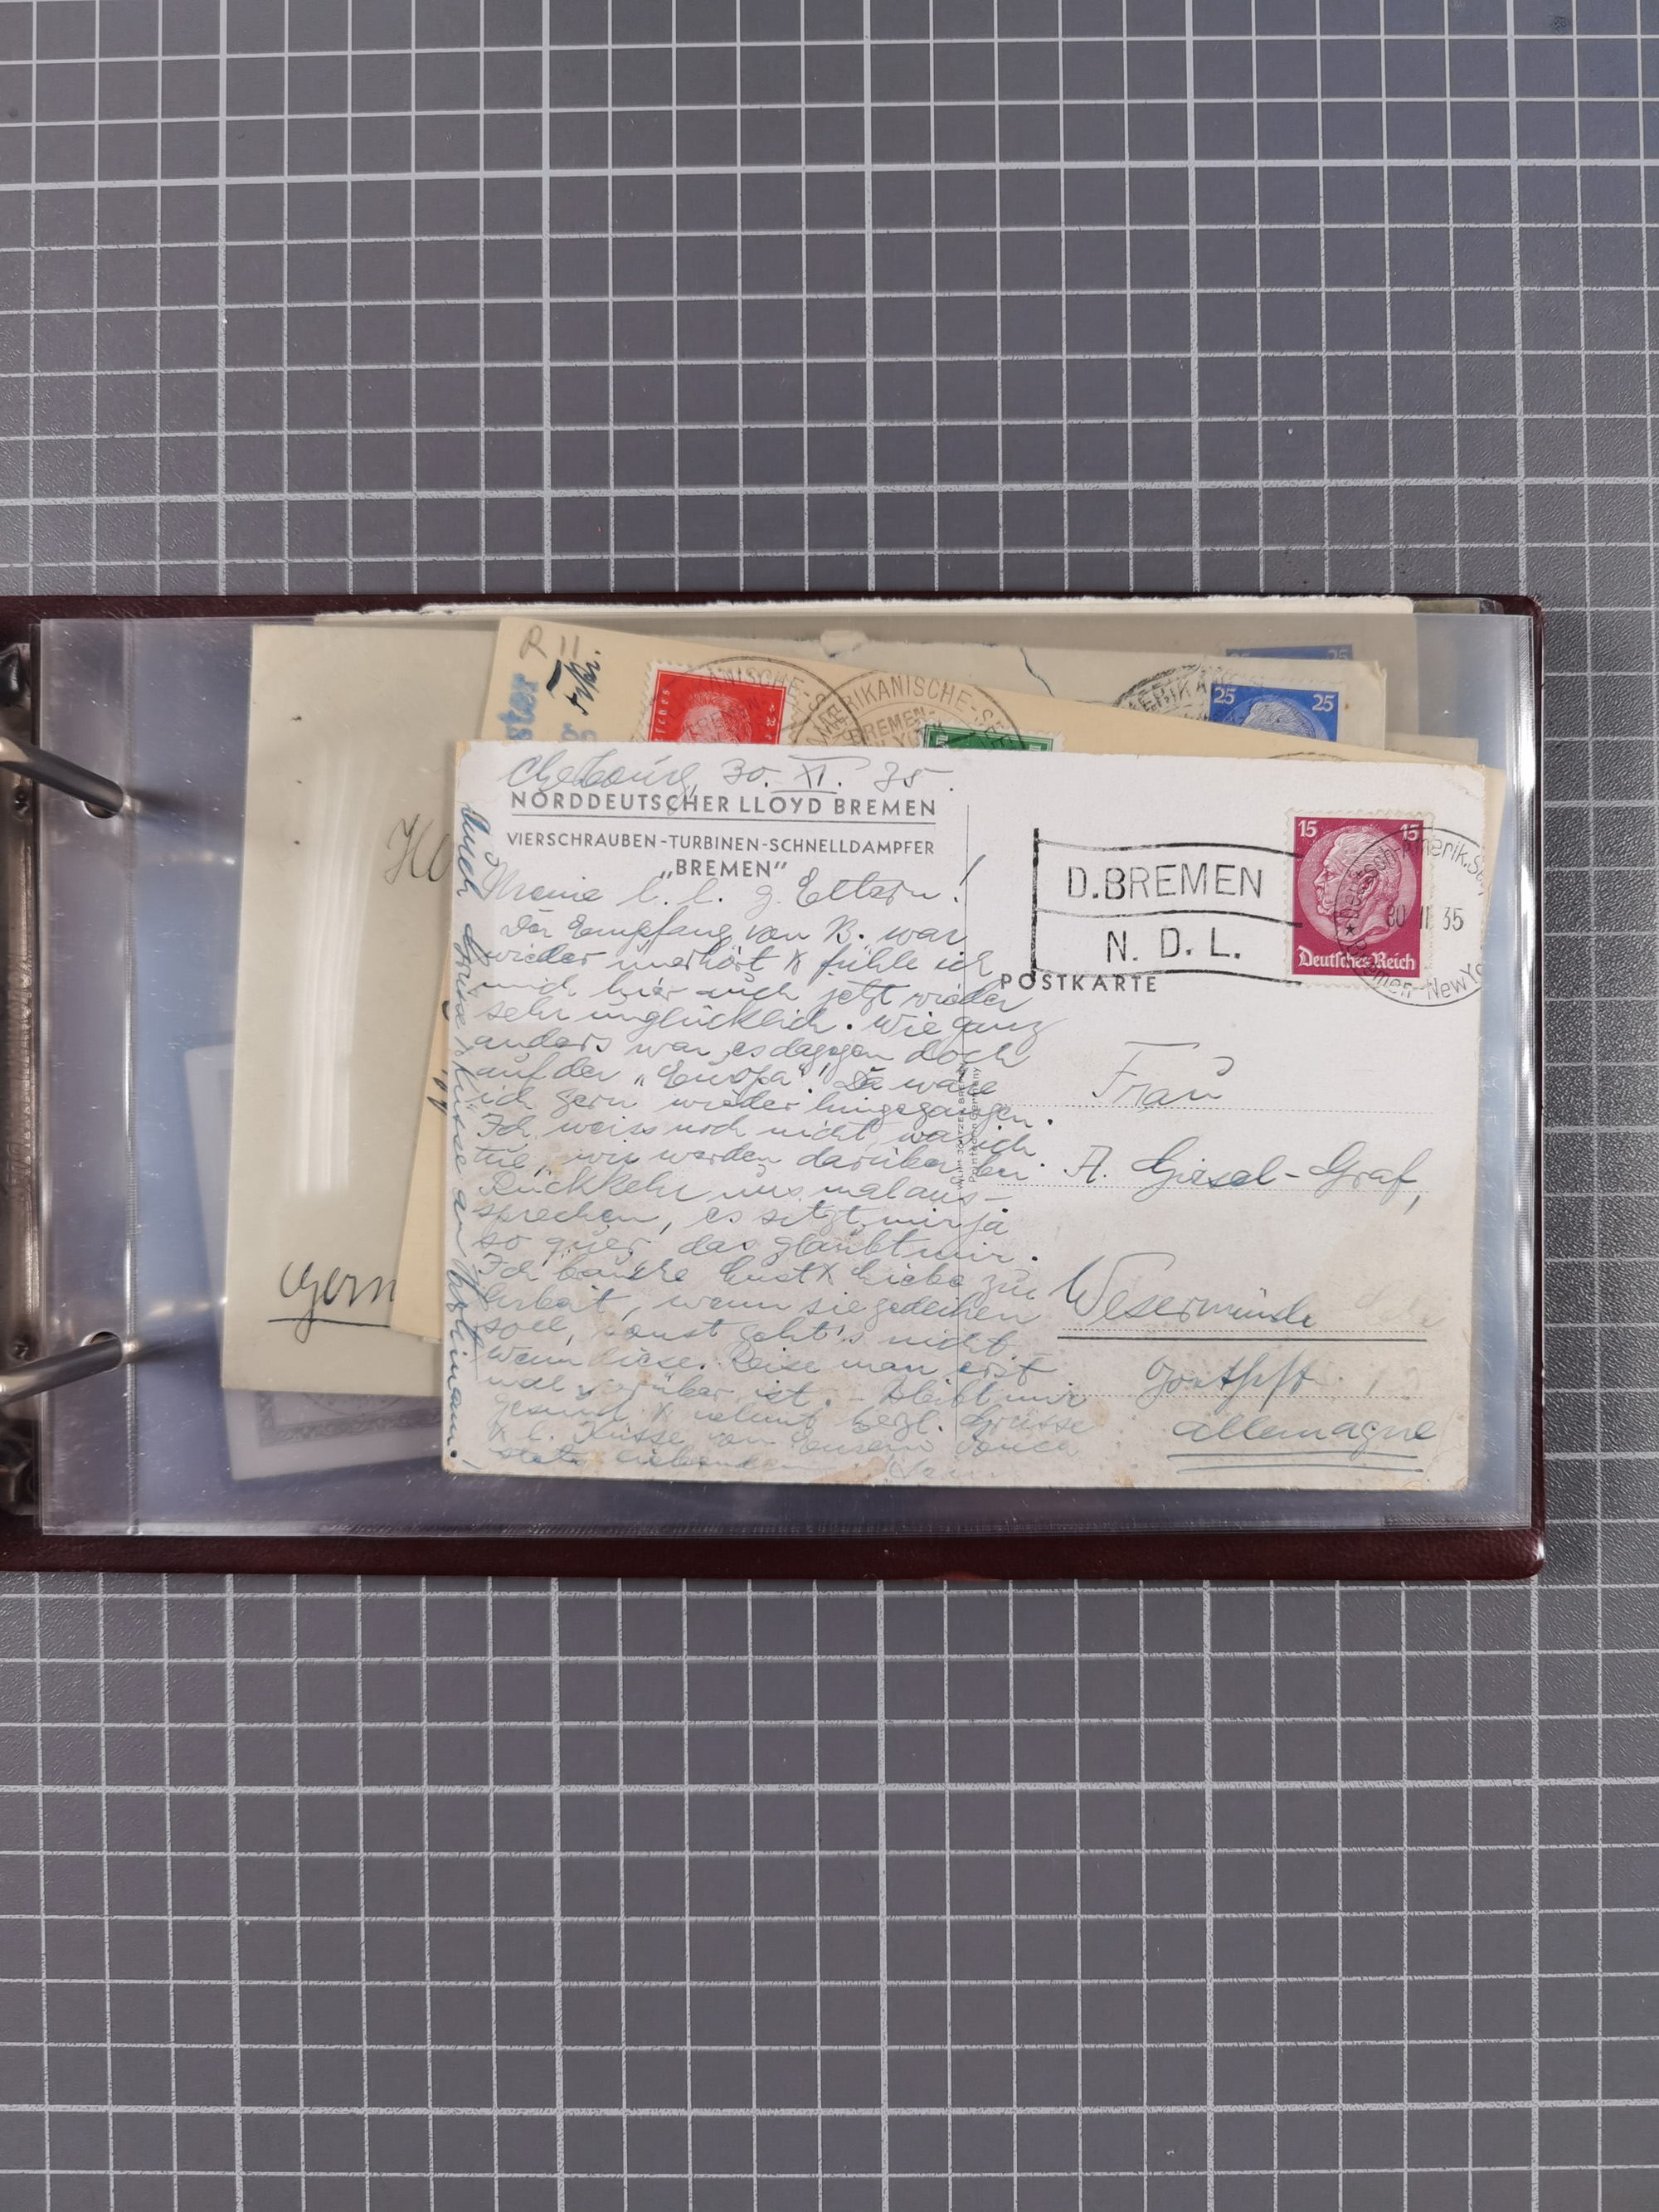 R 11
25 25
25 25
AMERIKANISCHE-
BREMEN-
Cherbourg, 30. XI. 35.
NORDDEUTSCHER LLOYD BREMEN
VIERSCHRAUBEN-TURBINEN-SCHNELLDAMPFER
„BREMEN"
Meine l. l. g. Eltern!
Der Empfang von B. war
wieder unerhört & fühle ich
mich hier auch jetzt wieder
sehr unglücklich. Wie ganz
anders war es dagegen doch
auf der „Europa". Da wäre
ich gern wieder hingegangen.
Ich weiss noch nicht, was ich
tue, wir werden darüber bei
Rückkehr uns mal aus-
sprechen, es sitzt mir ja
so quer, das glaubt mir.
Ich brauche Lust & Liebe zur
Arbeit, wenn sie gedeihen
soll, sonst geht's nicht.
Wenn diese Reise man erst
mal vorüber ist. – Bleibt mir
gesund & nehmt herzl. Grüsse
& l. Küsse von Eurem Euch
stets liebenden
Auch Grüsse & Küsse an
D. BREMEN
N. D. L.
15 15
Deutsches Reich
Deutsch-Amerik. See
30 11 35
Bremen-New Yo
POSTKARTE
Printed in Germany
Frau
A. Giesel-Graf,
Wesermünde
Allemagne